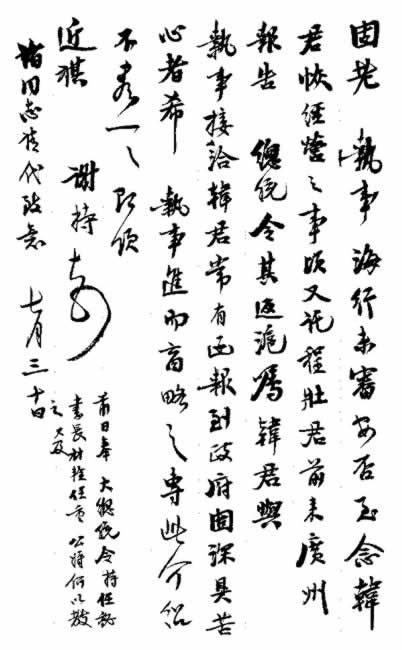 固老 執事海行未審安否至念韓
君恢經營之事頃又託程壯君前來廣州
報告 總統令其返滬囑韓君與
執事接洽韓君常有函報到政府固深具苦
心者希 執事進而商略之專此介紹
不盡一一即頌
近祺 謝持
諸同志清代致意 七月三十日
前日奉 大總統令持任秘
書長材輕任重公將何以教
之 又及